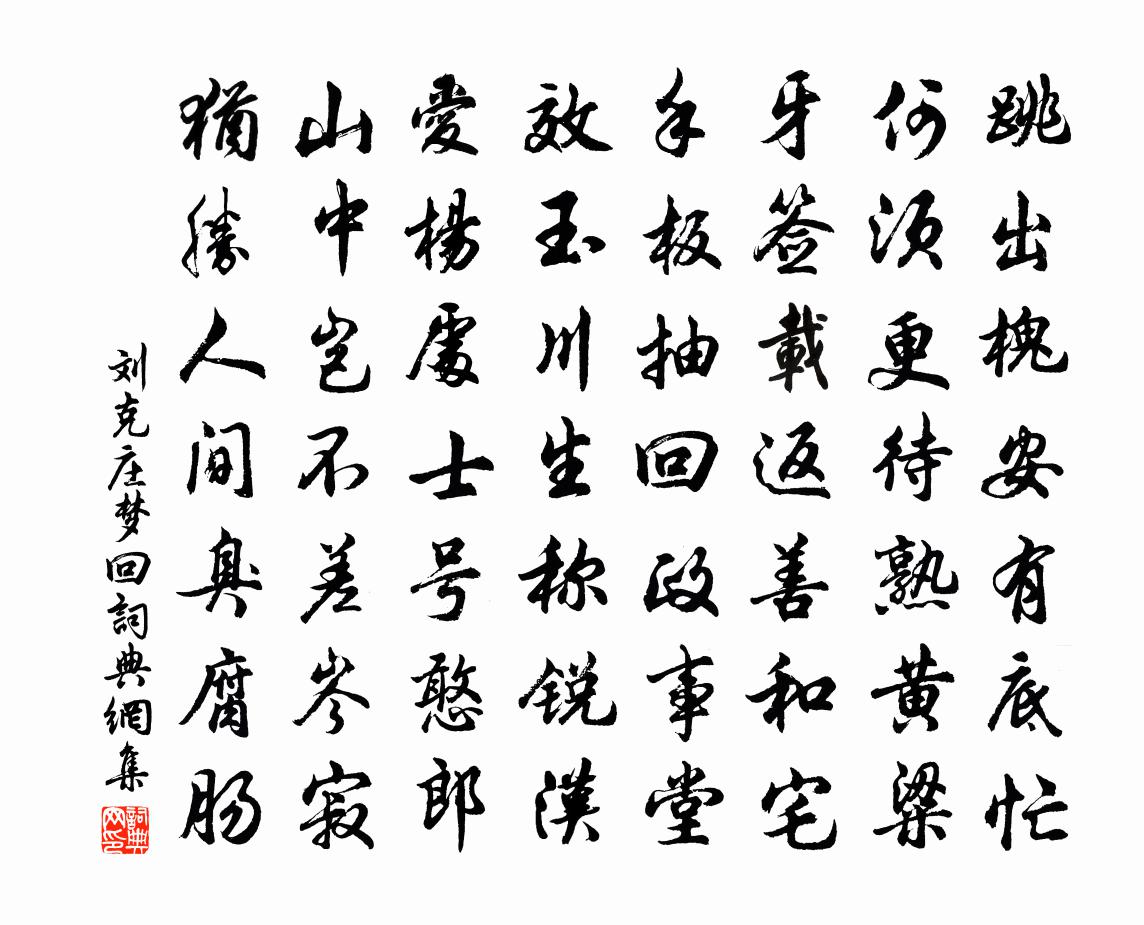 跳出槐安有底忙
何須更待熟黄粱
牙签載返善和宅
手板抽回政事堂
效玉川生称锐漢
愛楊處士号憨郎
山中岂不差岑寂
猶勝人间臭腐肠
刘克庄梦回詞典網集
詞典网印